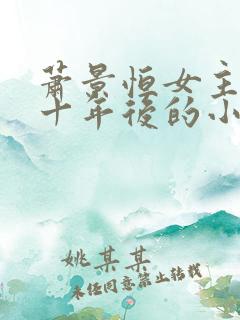 蕭景恒女主
十年後的小
姚某某
未经同意禁止转载